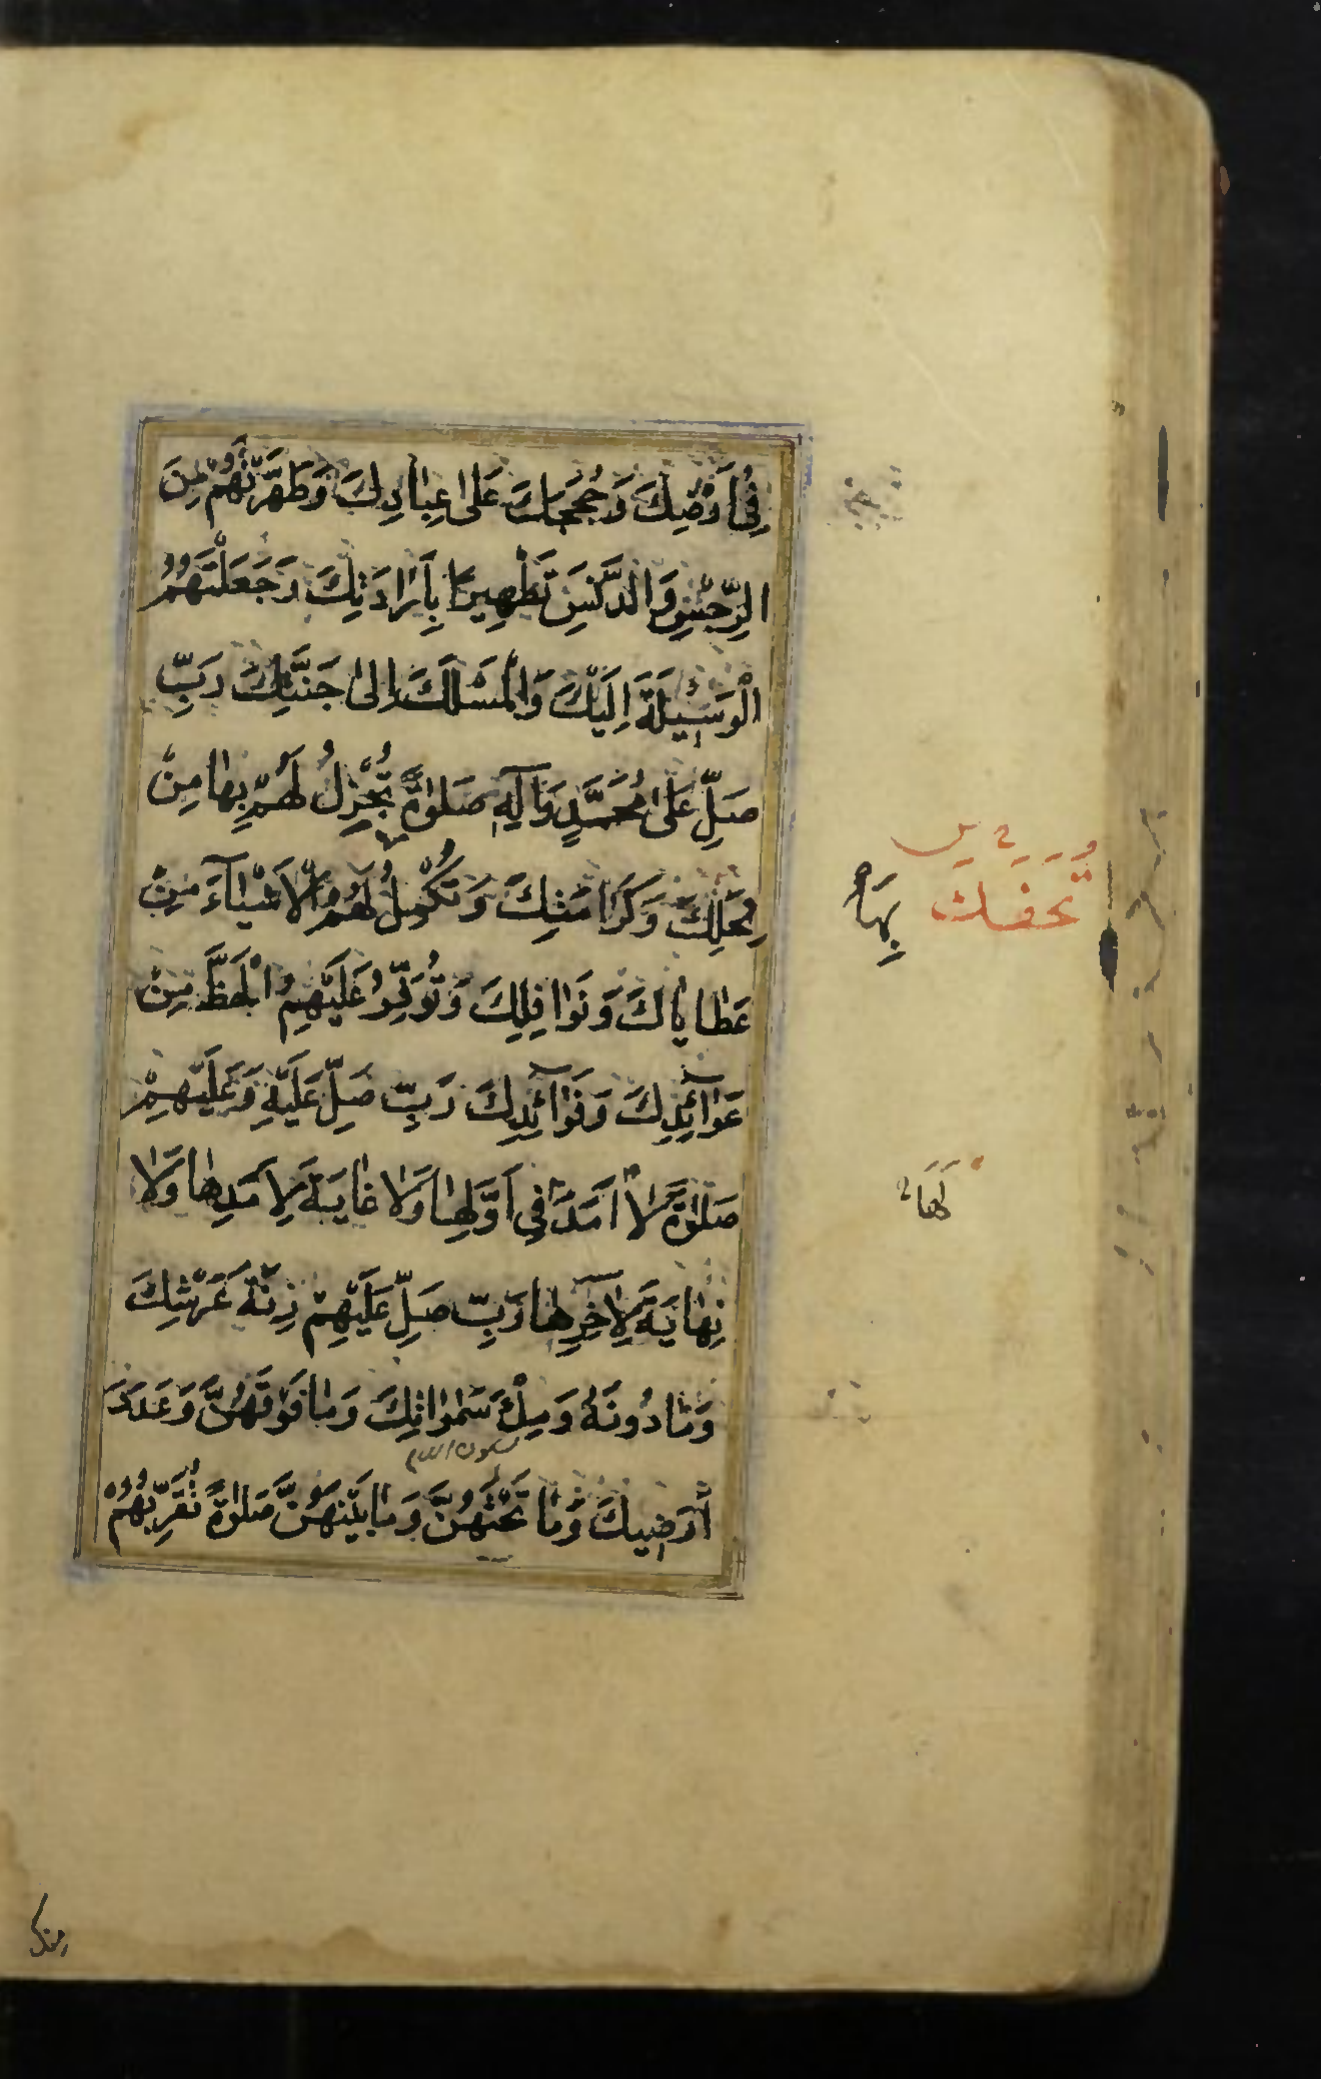 فِي اَرْضِكَ وَحُجَجِكَ عَلٰى عِبٰادِكَ وَطَهَّرْتَهُمْ مِنَ
الرِّجْسِ وَالدَّنَسِ تَطْهِيرًا بِاِرٰادَتِكَ وَجَعَلْتَهُمُ
الْوَسِيْلَةَ اِلَيْكَ وَالْمَسْلَكَ اِلىٰ جَنَّتِكَ رَبِّ
صَلِّ عَلٰى مُحَمَّدٍ وَاٰلِهِ صَلوٰةً تُجْزِلُ لَهُمْ بِهٰا مِنْ
نِحَلِكَ وَكَرٰامَتِكَ وَتُكْمِلُ لَهُمُ الْاَشْيٰآءَ مِنْ
عَطٰايٰاكَ وَنَوٰافِلِكَ وَتُوَفِّرُ عَلَيْهِمُ الْحَظَّ مِنْ
عَوٰآئِدِكَ وَفَوٰآئِدِكَ رَبِّ صَلِّ عَلَيْهِ وَعَلَيْهِمْ
صَلوٰةً لٰا اَمَدَ فِي اَوَّلِهٰا وَلٰا غٰايَةَ لِاَمَدِهٰا وَلٰا
نِهٰايَةَ لِاٰخِرِهٰا رَبِّ صَلِّ عَلَيْهِمْ زِنَةَ عَرْشِكَ
وَمٰا دُونَهُ وَمِلْءَ سَمٰوٰاتِكَ وَمٰا فَوْقَهُنَّ وَعَدَدَ
اَرَضِيكَ وَمٰا تَحْتَهُنَّ وَمٰا بَيْنَهُنَّ صَلوٰةً تُقَرِّبُهُمْ
تُحَفِكَ
بِهَا
لَهَا